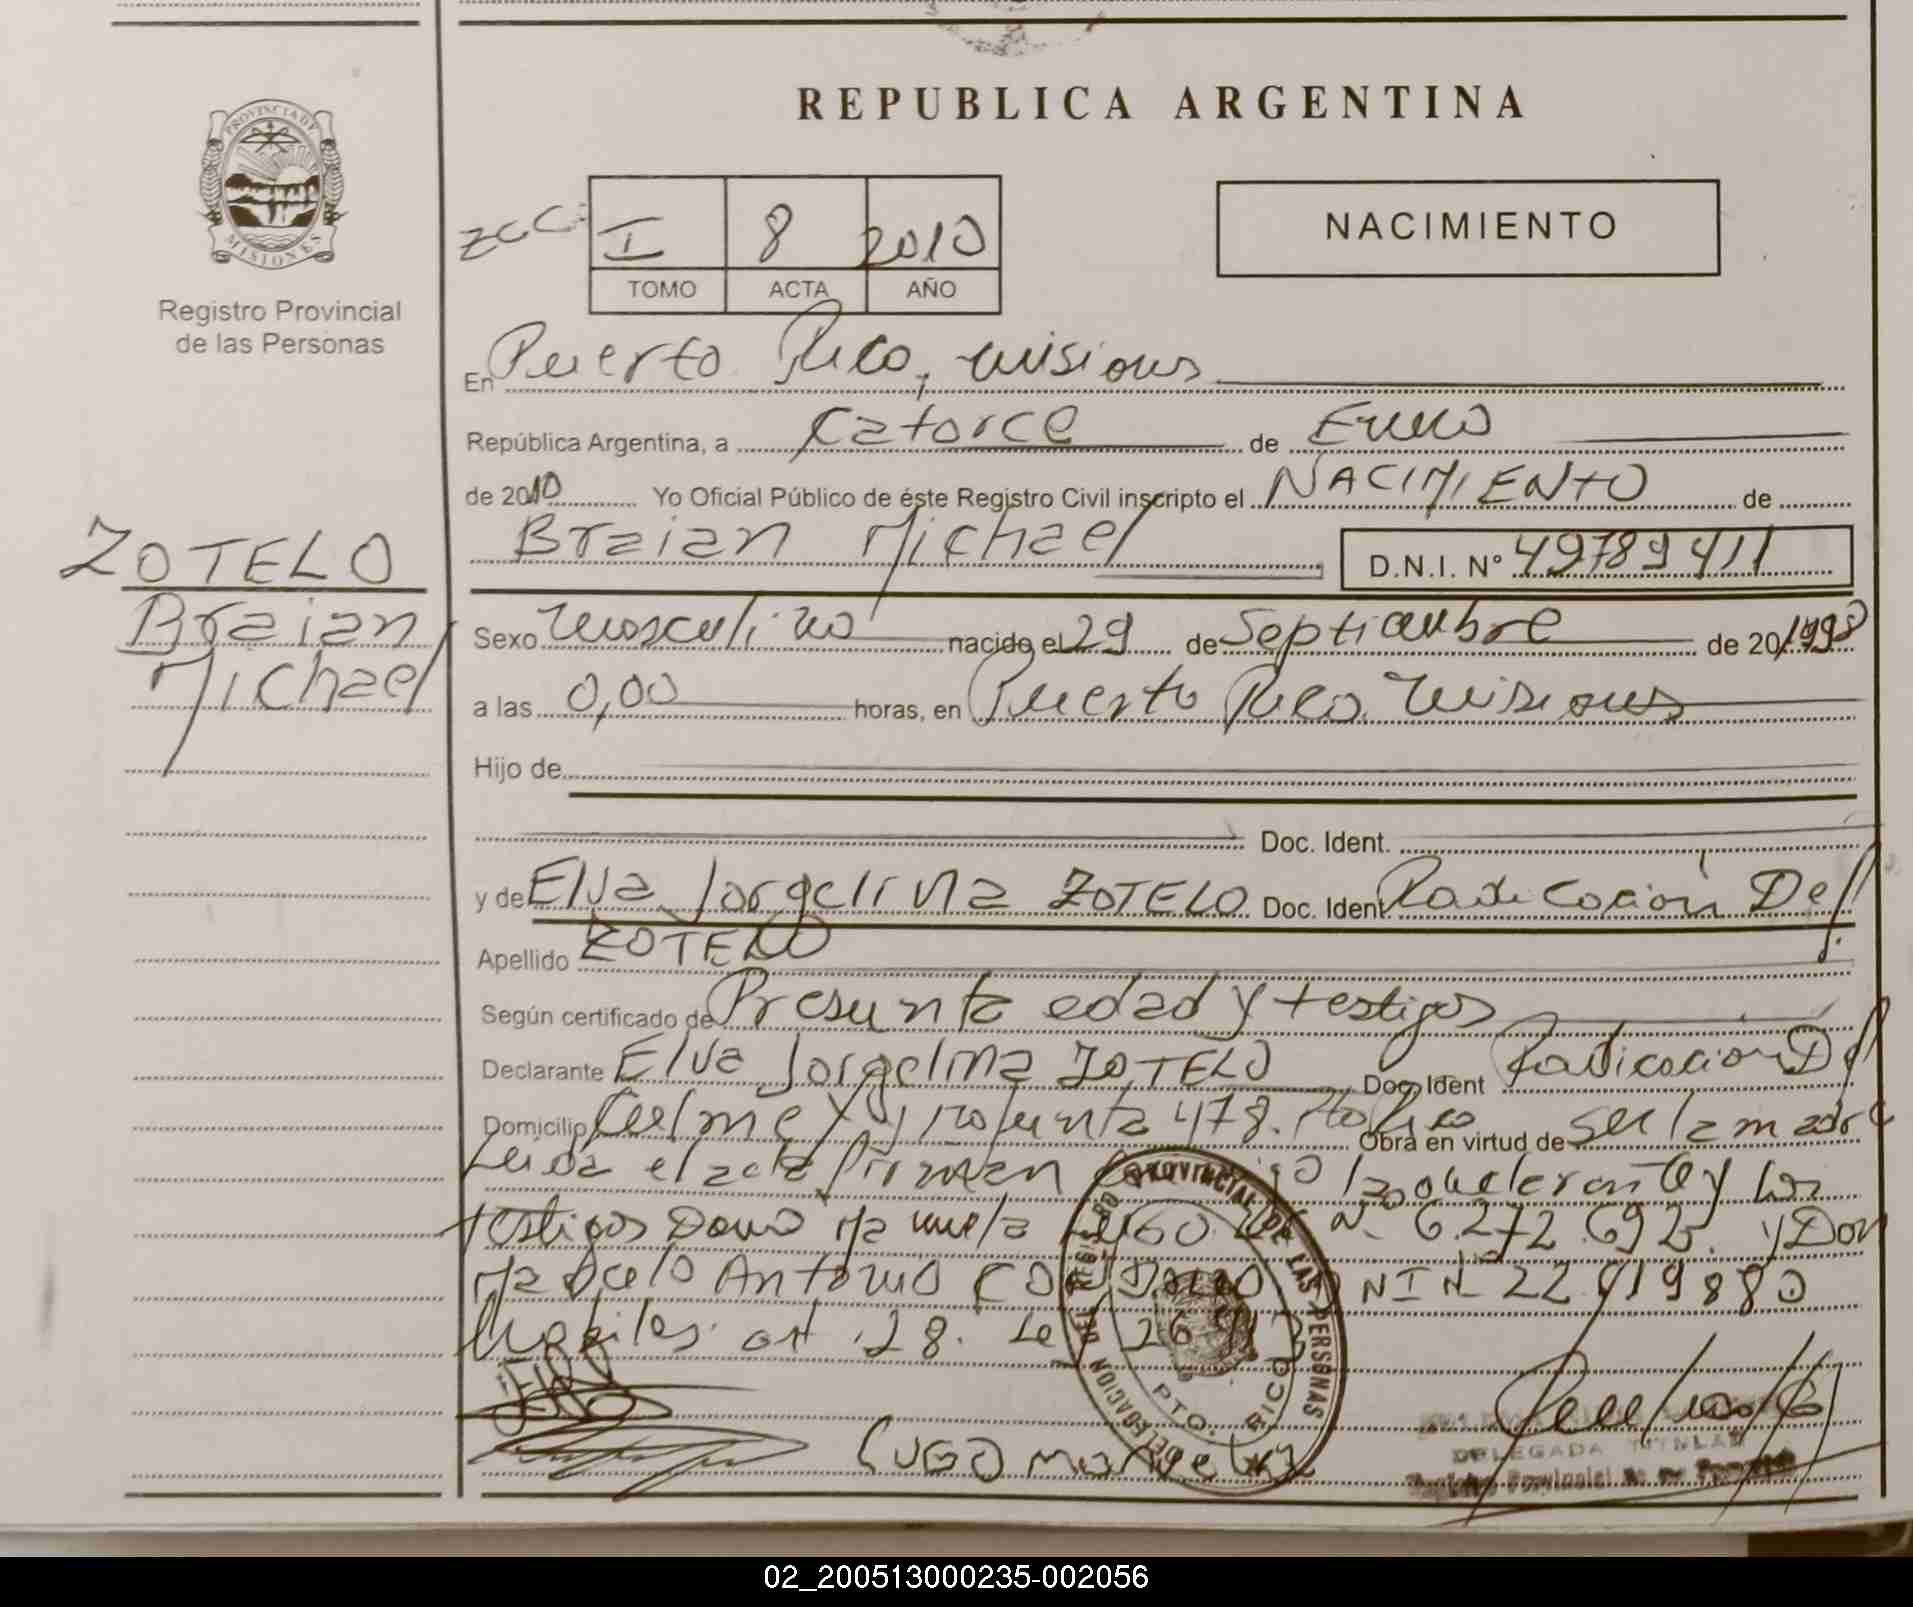 REPUBLICA ARGENTINA
PROVINCIA DE
MISIONES
Registro Provincial
de las Personas
I 8 2010
TOMO ACTA AÑO
NACIMIENTO
En Puerto Rico, Misiones
República Argentina, a Catorce de Enero
de 2010 Yo Oficial Público de éste Registro Civil inscripto el NACIMIENTO de
Braian Michael D.N.I. N° 49789411
ZOTELO
Braian
Michael
Sexo Masculino nacido el 29 de Septiembre de 20 1998
a las 0,00 horas, en Puerto Rico Misiones
Hijo de
Doc. Ident.
y de Elva Jorgelina ZOTELO Doc. Ident. Radicación Def.
Apellido ZOTELO
Según certificado de Presunta edad y testigos
Declarante Elva Jorgelina ZOTELO Doc. Ident Radicación Def
Domicilio 478. Pto Rico Obra en virtud de ser la madre
Leida el acta firman la declarante y los
testigos Doña Manuela LUGO N° 6.272.692 y Don
Marcelo Antonio DNI N° 22.419880
art. 28. Ley
DELEGACION DEL REGISTRO PROVINCIAL DE LAS PERSONAS
PTO. RICO
LUGO Manuela
DELEGADA TITULAR
Registro Provincial de las Personas
02_200513000235-002056